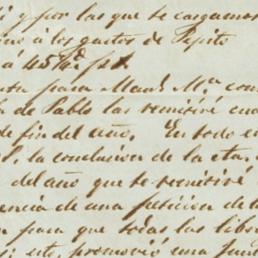 i y por las que se carguemos
à los gastos de Pepito
a 45
para Man.l M.a con
de Pablo las remitiré cua
de fin del año. En todo e
la conclusion de la cta.
del año que te remitiré
encia de una peticion de l
para que todas las libr
esto, promovió una Junt